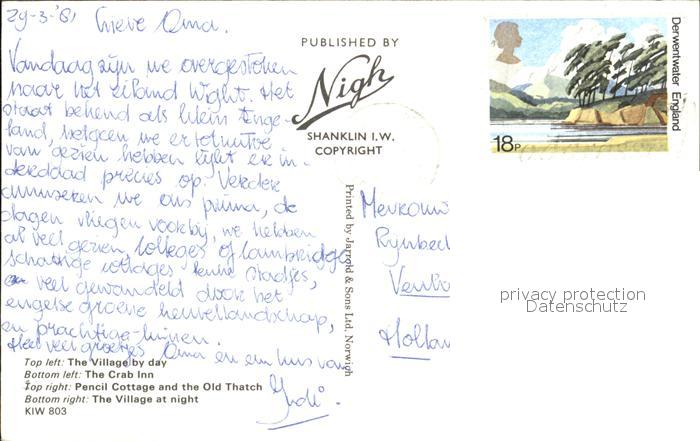 29-3-'81 Lieve Oma.
Vandaag zijn we overgestoken
naar het eiland Wight. Het
staat bekend als klein Enge-
land, hetgeen we er tot nu toe
van gezien hebben lijkt er in-
derdaad precies op. Verder
amuseren we ons prima, de
dagen vliegen voorbij, we hebben
al veel gezien, colleges of Cambridge
schattige cottages, leuke stadjes,
veel gewandeld door het
engelse groene heuvellandschap,
en prachtige
Heel veel groetjes Oma en een kus van
PUBLISHED BY
Nigh
SHANKLIN I.W.
COPYRIGHT
Printed by Jarrold & Sons Ltd. Norwich
18P
Derwentwater England
Venlo
Hollan
privacy protection
Datenschutz
Top left: The Village by day
Bottom left: The Crab Inn
Top right: Pencil Cottage and the Old Thatch
Bottom right: The Village at night
KIW 803